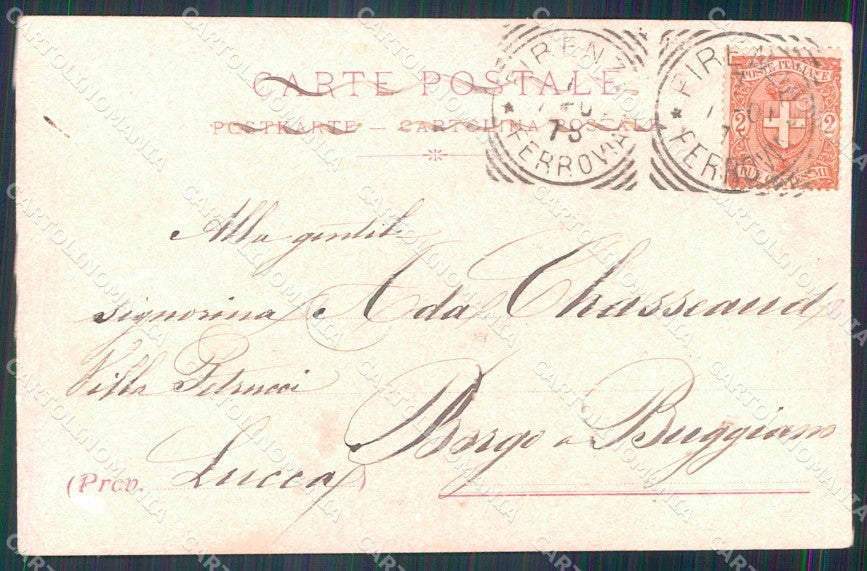 CARTE POSTALE
POSTKARTE — CARTOLINA POSTALE
FIRENZE
78
FERROVIA
FIRENZE
FERROVIA
POSTE ITALIANE
2 2
Alla gentil
Signorina Ada Chasseaud
Villa Petrucci
Borgo a Buggiano
(Prov. Lucca)
CARTOLINOMANIA